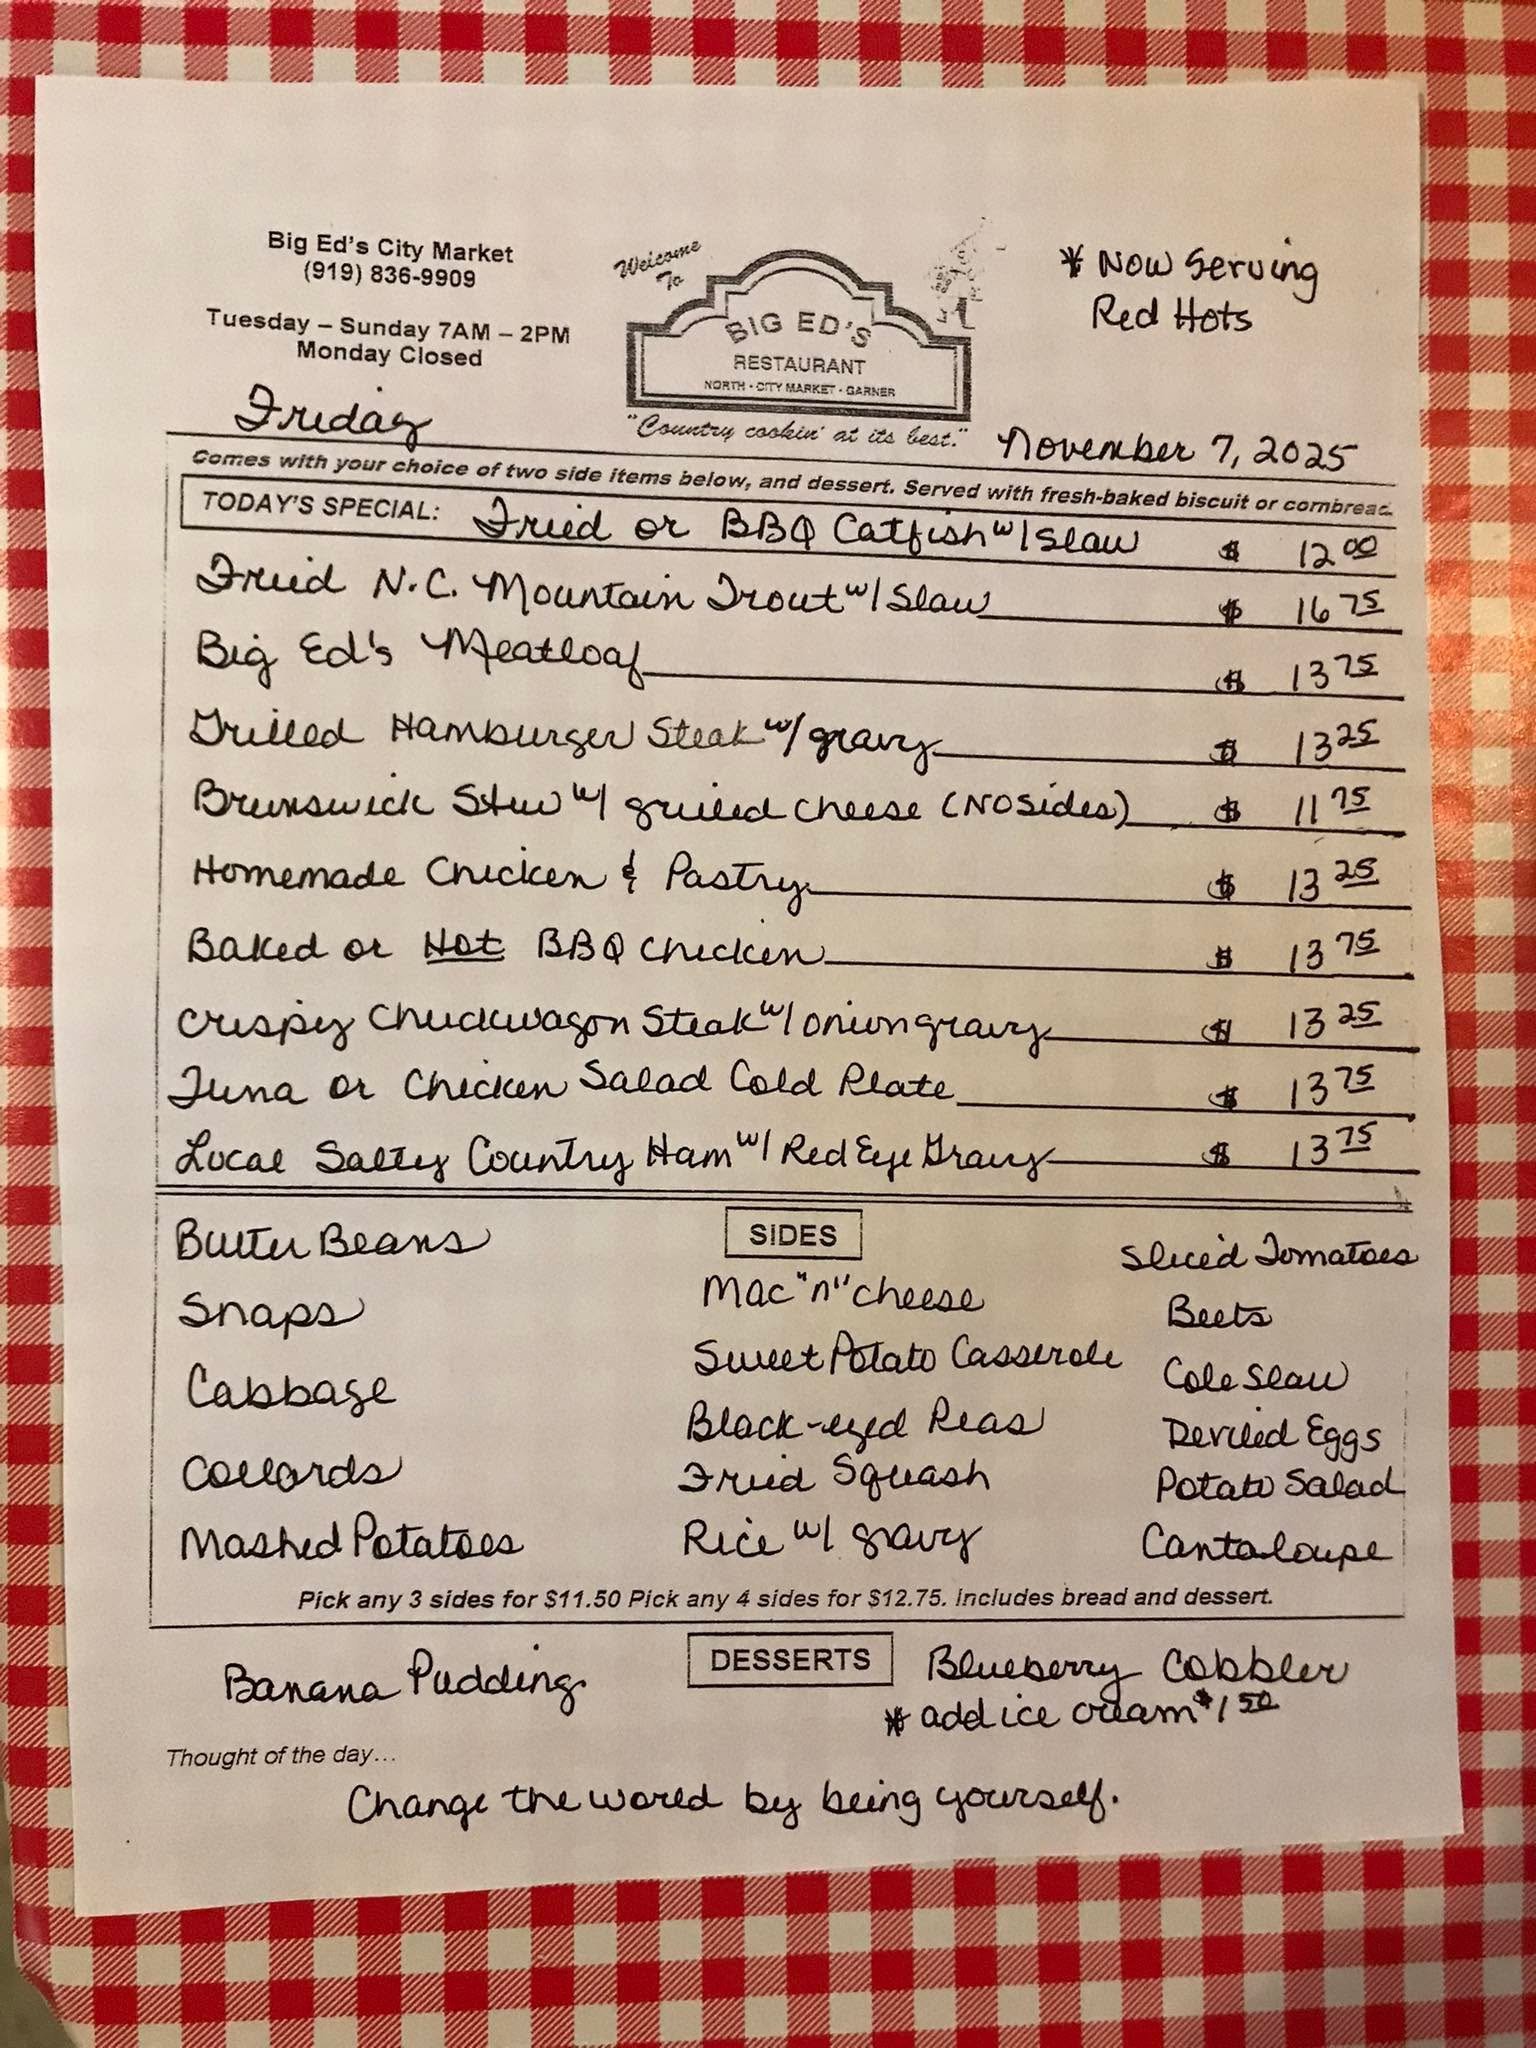 Big Ed's City Market
(919) 836-9909
Tuesday – Sunday 7AM – 2PM
Monday Closed
Welcome
To
BIG ED'S
RESTAURANT
NORTH - CITY MARKET - GARNER
"Country cookin' at its best."
* Now Serving
Red Hots
Friday
November 7, 2025
Comes with your choice of two side items below, and dessert. Served with fresh-baked biscuit or cornbread.
TODAY'S SPECIAL: Fried or BBQ Catfish w/ Slaw $ 12.00
Fried N.C. Mountain Trout w/ Slaw $ 16.75
Big Ed's Meatloaf $ 13.75
Grilled Hamburger Steak w/ gravy $ 13.25
Brunswick Stew w/ grilled cheese (No Sides) $ 11.75
Homemade Chicken & Pastry $ 13.25
Baked or Hot BBQ chicken $ 13.75
Crispy Chuckwagon Steak w/ onion gravy $ 13.25
Tuna or Chicken Salad Cold Plate $ 13.75
Local Salty Country Ham w/ Red Eye Gravy $ 13.75
SIDES
Butter Beans
Snaps
Cabbage
Collards
Mashed Potatoes
Mac "n" cheese
Sweet Potato Casserole
Black-eyed Peas
Fried Squash
Rice w/ gravy
Sliced Tomatoes
Beets
Cole Slaw
Deviled Eggs
Potato Salad
Cantaloupe
Pick any 3 sides for $11.50 Pick any 4 sides for $12.75. Includes bread and dessert.
DESSERTS
Banana Pudding
Blueberry Cobbler
* add ice cream $1.50
Thought of the day…
Change the world by being yourself.